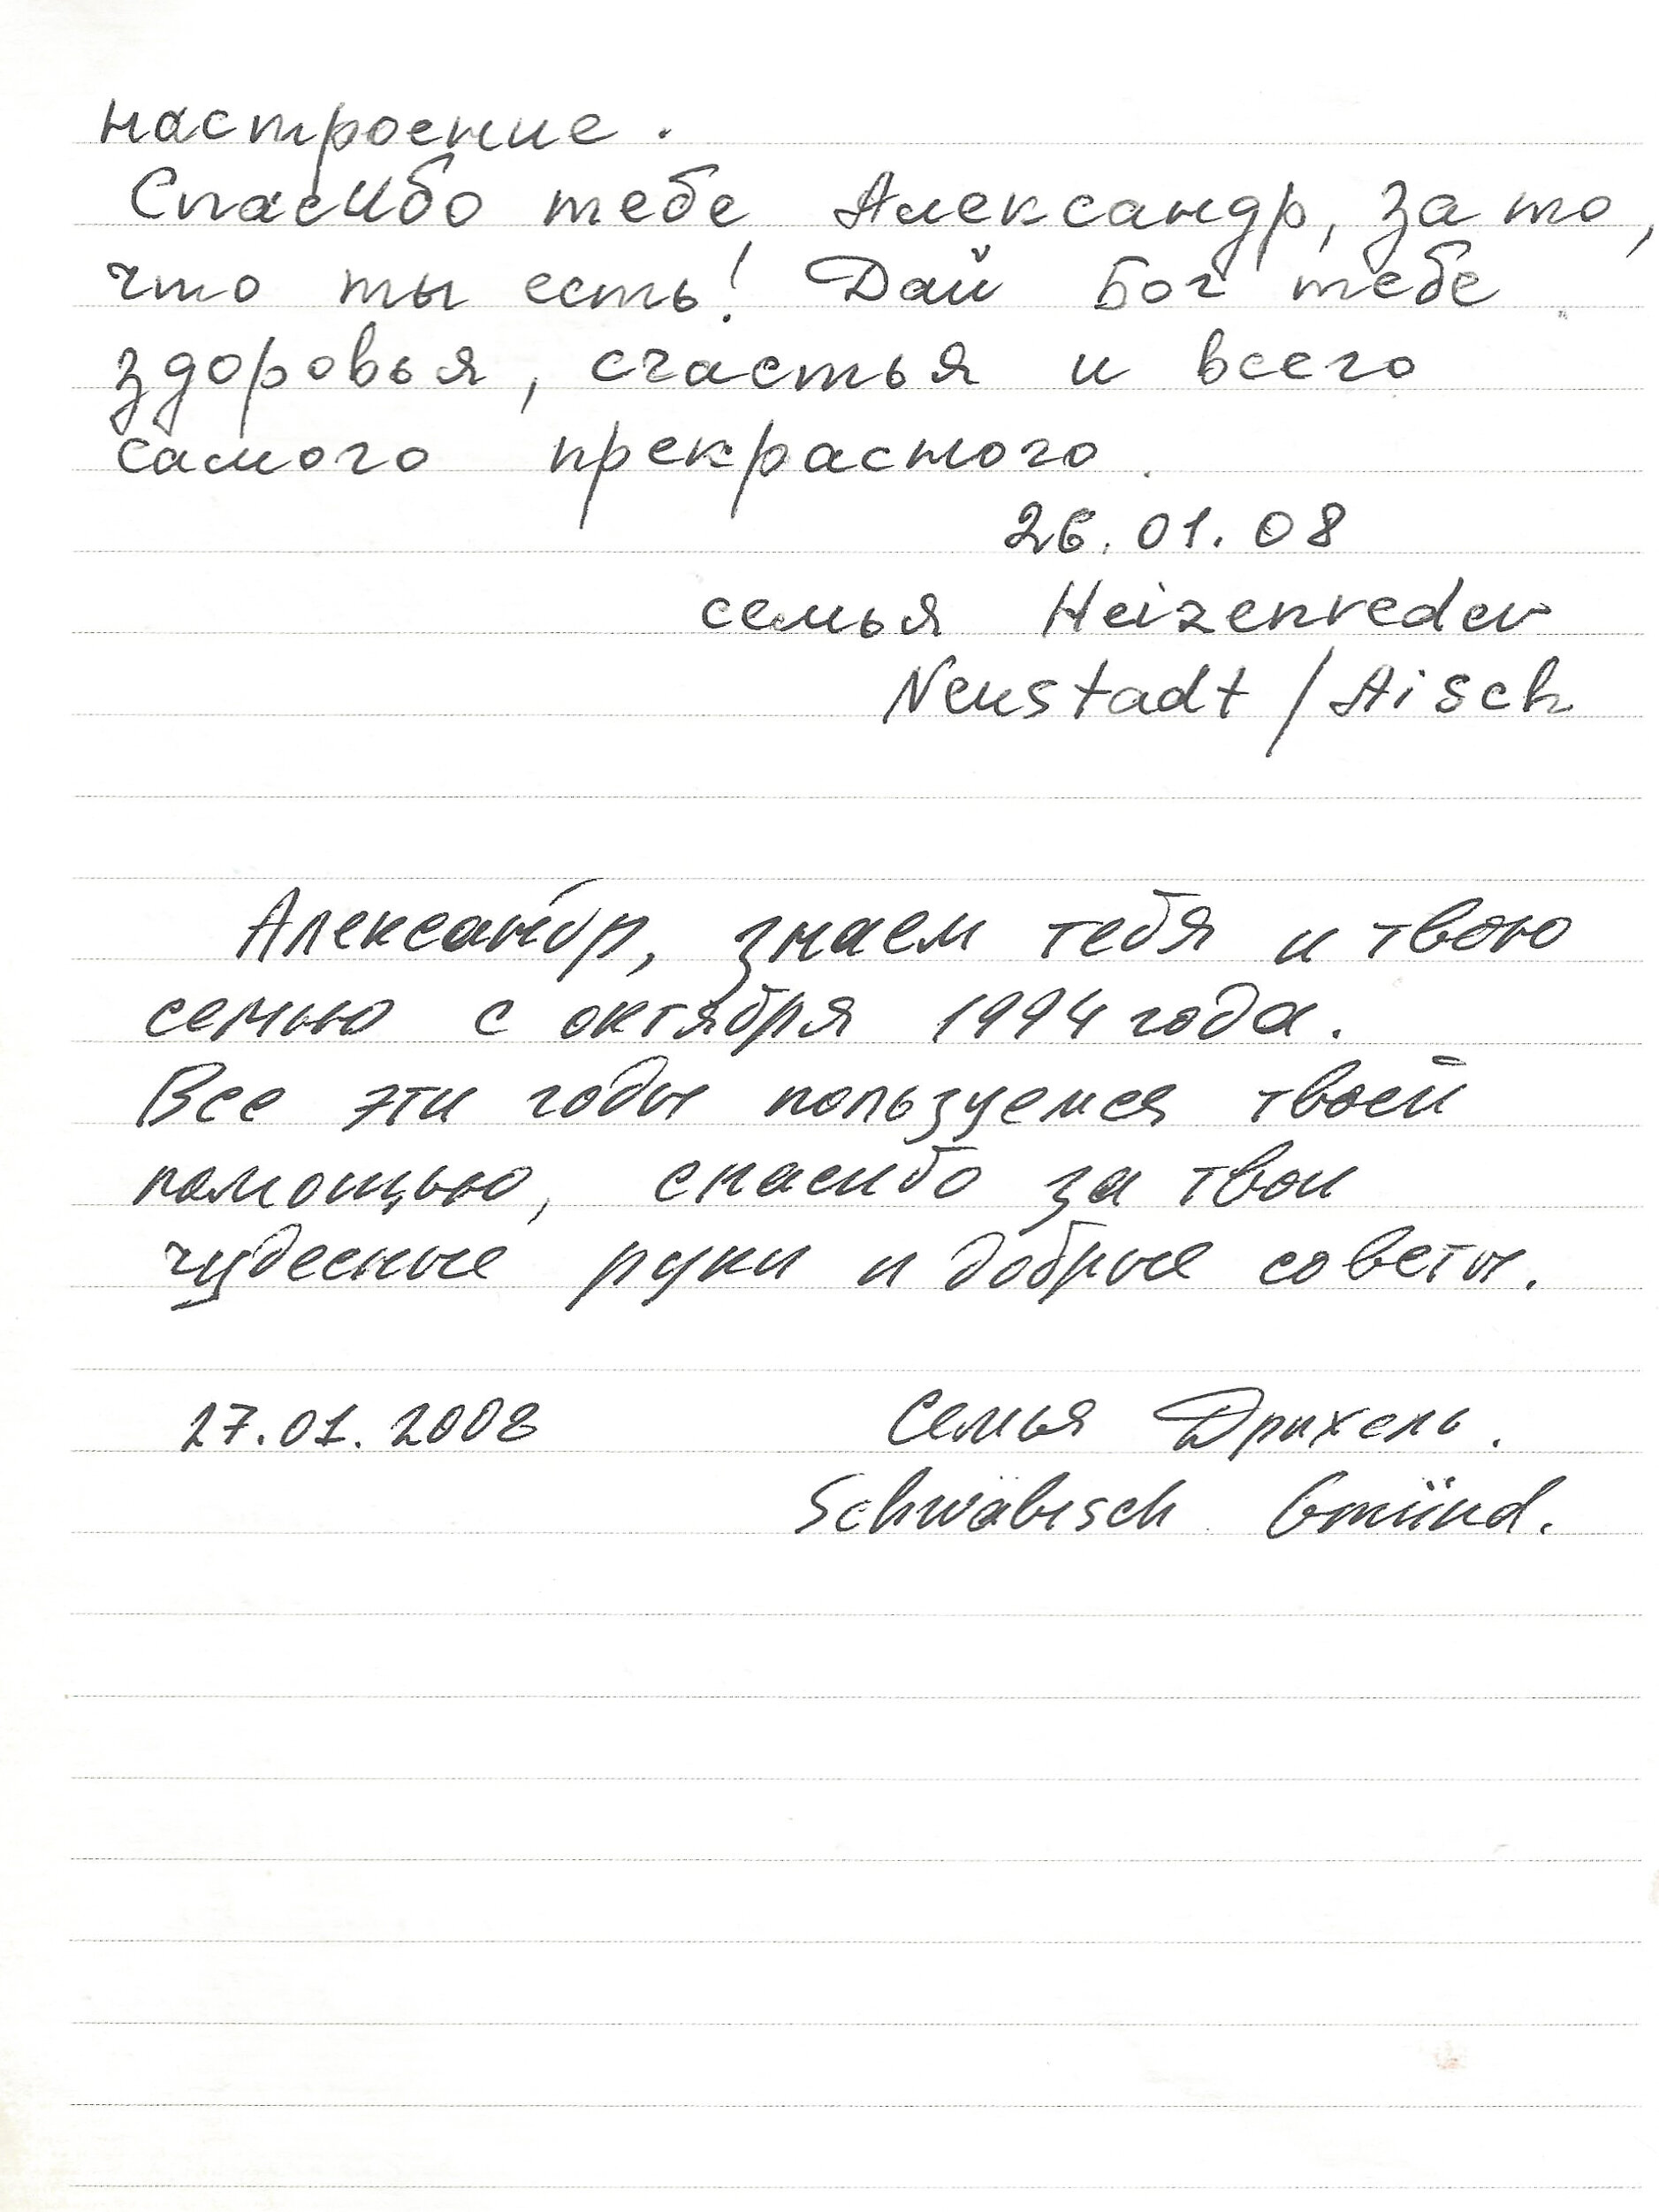 настроение.
Спасибо тебе, Александр, за то,
что ты есть! Дай Бог тебе
здоровья, счастья и всего
самого прекрасного.
26.01.08
семья Heizenreder
Neustadt / Aisch
Александр, знаем тебя и твою
семью с октября 1994 года.
Все эти годы пользуемся твоей
помощью, спасибо за твои
чудесные руки и добрые советы.
27.01.2008 Семья Дрихель.
Schwäbisch Gmünd.